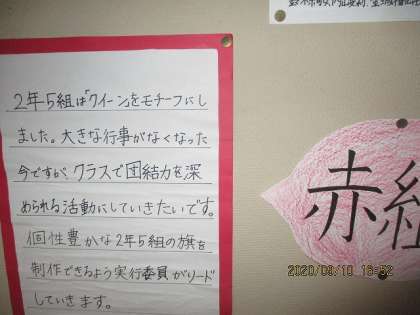 2年5組は「クイーン」をモチーフにし
ました。大きな行事がなくなった
今ですが、クラスで団結力を深
められる活動にしていきたいです。
個性豊かな2年5組の旗を
制作できるよう実行委員がリード
していきます。
赤組
2020/09/10 16:52